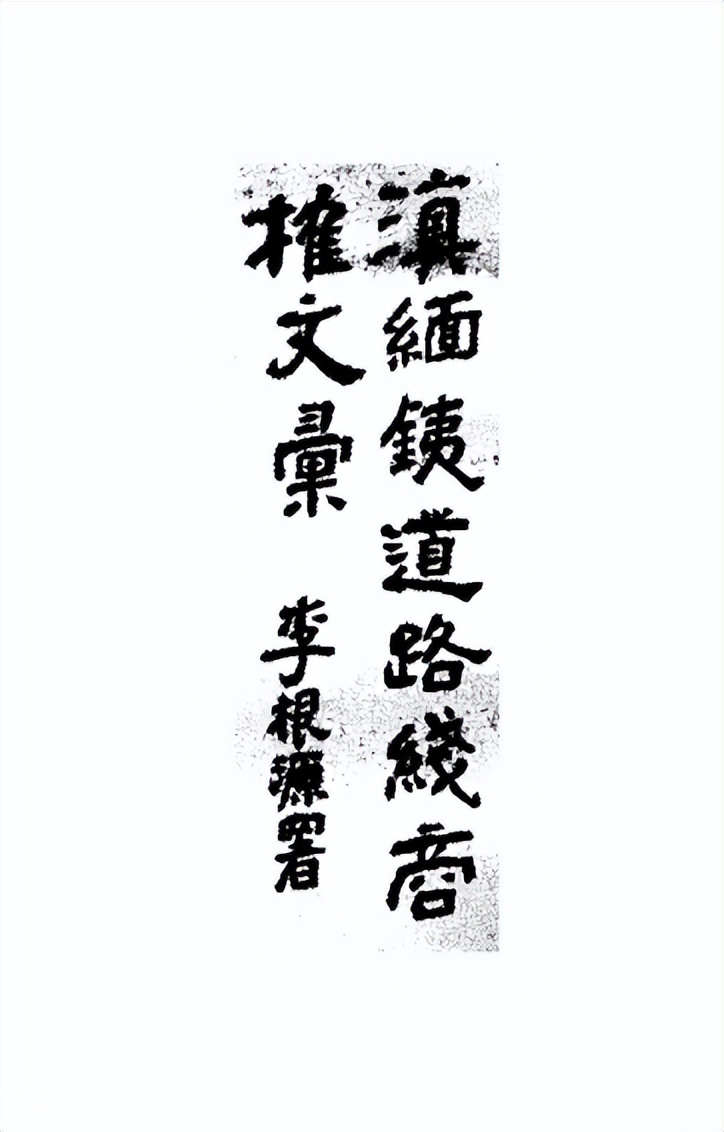 滇緬銕道路綫商
榷文彙 李根源署